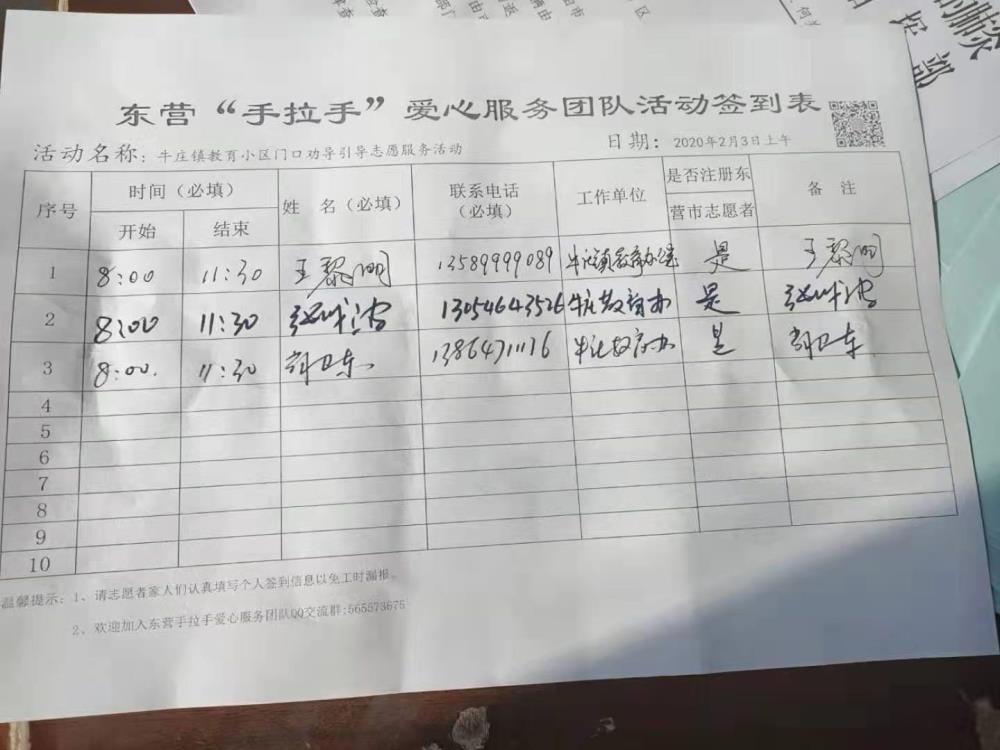 东营“手拉手”爱心服务团队活动签到表
活动名称：牛庄镇教育小区门口劝导引导志愿服务活动 日期：2020年2月3日上午
序号 时间（必填） 姓 名（必填） 联系电话（必填） 工作单位 是否注册东营市志愿者 备 注
开始 结束
1 8:00 11:30 王黎明 13589999089 牛庄镇教育办 是 王黎明
2 8:00 11:30 13054643526 牛庄教育办 是
3 8:00. 11:30 卫东 13864711116 牛庄教育办 是 卫东
4
5
6
7
8
9
10
温馨提示：1、请志愿者家人们认真填写个人签到信息以免工时漏报。
2、欢迎加入东营手拉手爱心服务团队QQ交流群:565573675